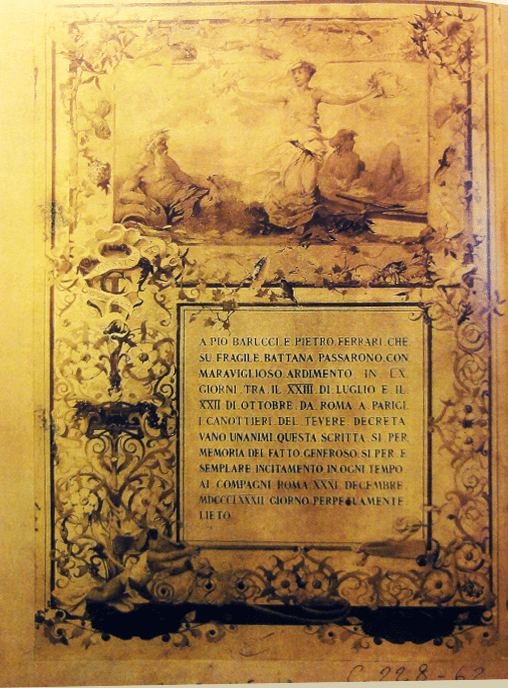 A PIO BARUCCI E PIETRO FERRARI CHE
SU FRAGILE BATTANA PASSARONO CON
MARAVIGLIOSO ARDIMENTO IN
GIORNI TRA IL XXIII DI LUGLIO E IL
XXII DI OTTOBRE DA ROMA A PARIGI
I CANOTTIERI DEL TEVERE DECRETA
VANO UNANIMI QUESTA SCRITTA SI PER
MEMORIA DEL FATTO GENEROSO SI PER E
SEMPLARE INCITAMENTO IN OGNI TEMPO
AI COMPAGNI ROMA XXXI DECEMBRE
MDCCCLXXXII GIORNO PERPETUAMENTE
LIETO